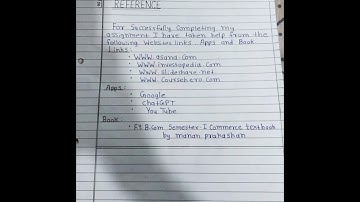 REFERENCE
For Successfully Completing my
assignment I have taken help from the
following Website links, Apps and Book
Links:
• WWW.asana.com
• WWW.investopedia.com
• WWW.slideshare.net
• WWW.Coursehero.com
Apps:
• Google
• ChatGPT
• YouTube
Book:
• F.Y. B.Com Semester-I Commerce textbook
by manan prakashan